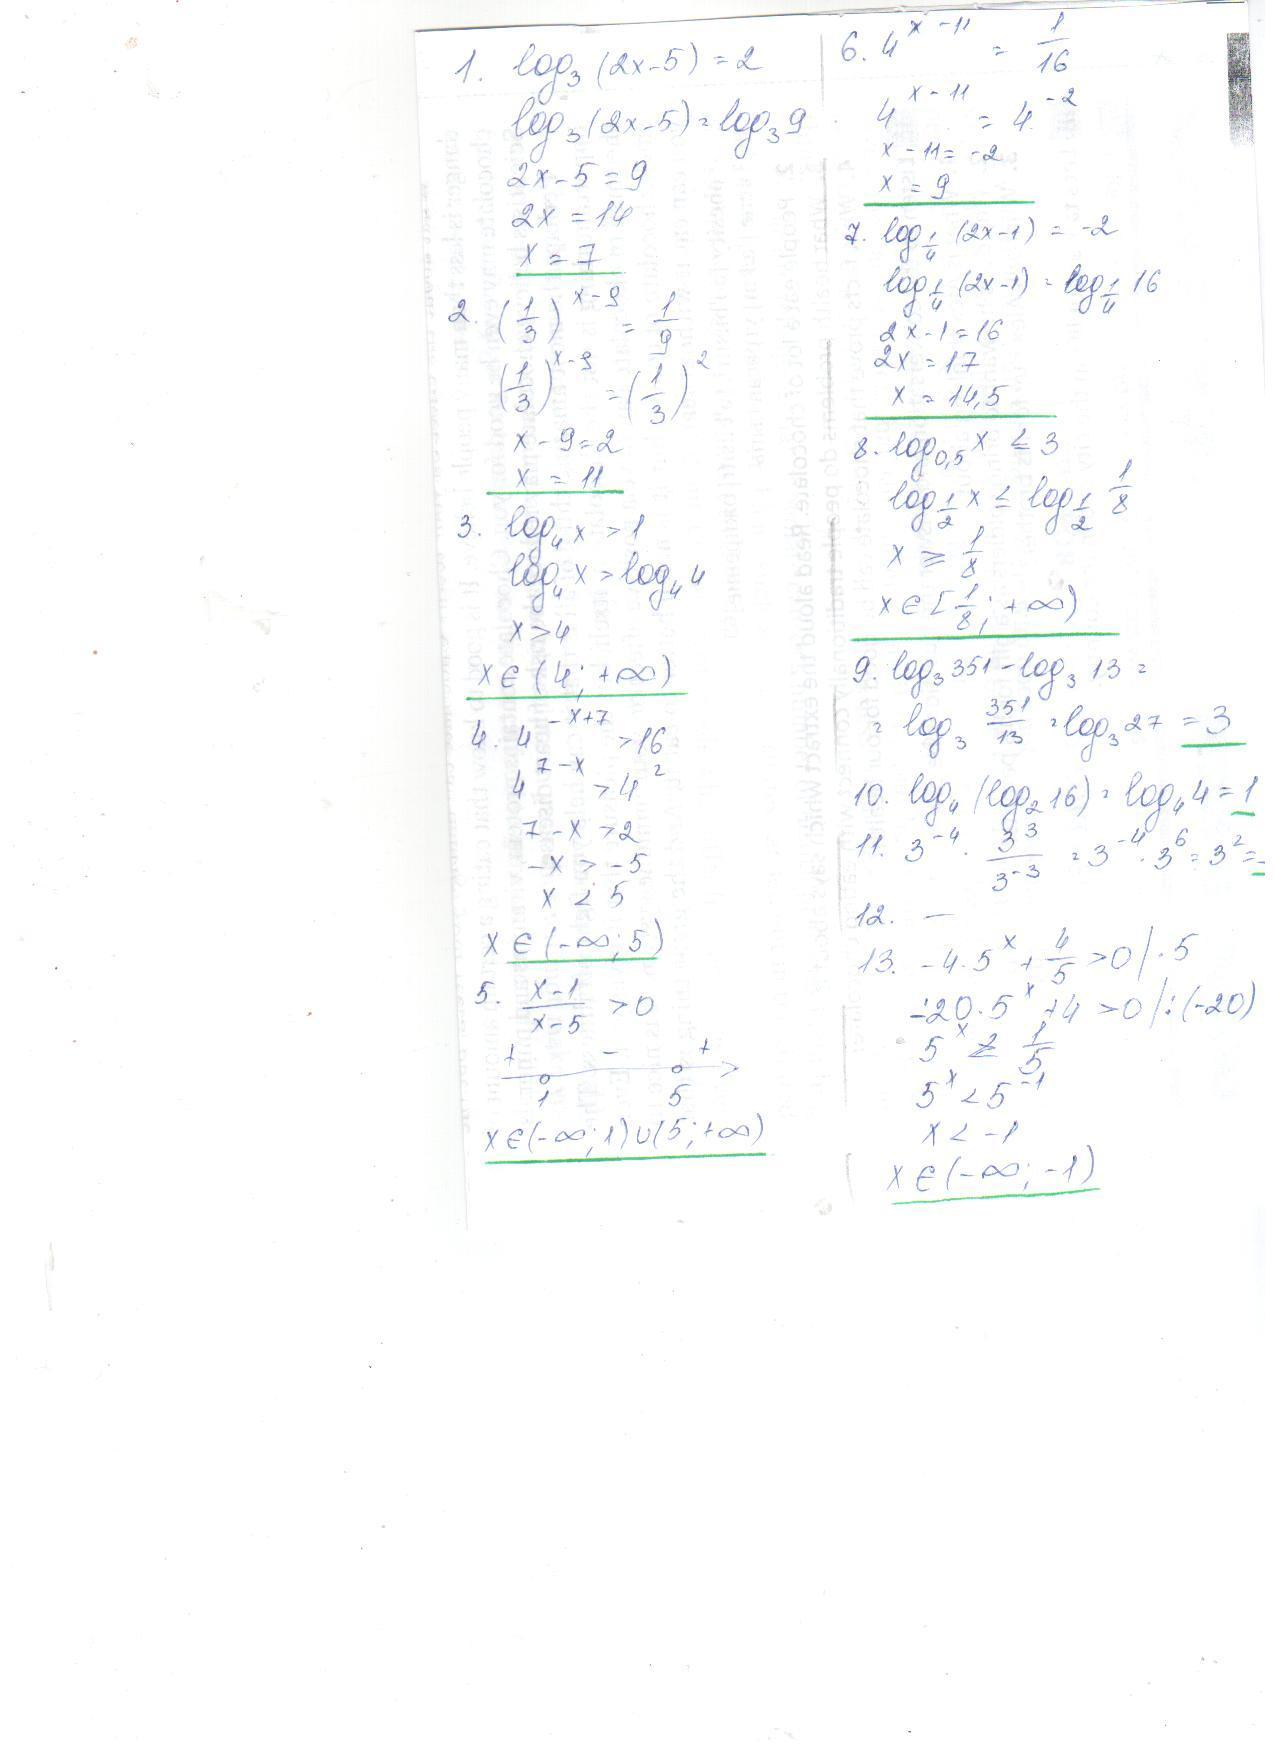 1. log₃ (2x-5) = 2
log₃ (2x-5) = log₃ 9
2x-5 = 9
2x = 14
x = 7
2. (1/3)^(x-9) = 1/9
(1/3)^(x-9) = (1/3)^2
x - 9 = 2
x = 11
3. log₄ x > 1
log₄ x > log₄ 4
x > 4
x ∈ (4; +∞)
4. 4^(-x+7) > 16
4^(7-x) > 4^2
7 - x > 2
-x > -5
x < 5
x ∈ (-∞; 5)
5. (x-1)/(x-5) > 0
+ - +
1 5
x ∈ (-∞; 1) ∪ (5; +∞)
6. 4^(x-11) = 1/16
4^(x-11) = 4^(-2)
x - 11 = -2
x = 9
7. log_(1/4) (2x-1) = -2
log_(1/4) (2x-1) = log_(1/4) 16
2x-1 = 16
2x = 17
x = 14,5
8. log_(0,5) x ≤ 3
log_(1/2) x ≤ log_(1/2) 1/8
x ≥ 1/8
x ∈ [1/8; +∞)
9. log₃ 351 - log₃ 13 =
= log₃ 351/13 = log₃ 27 = 3
10. log₄ (log₂ 16) = log₄ 4 = 1
11. 3^(-4) · 3^3/3^(-3) = 3^(-4) · 3^6 = 3^2 =
12. —
13. -4·5^x + 4/5 > 0 | · 5
-20·5^x + 4 > 0 | : (-20)
5^x < 1/5
5^x < 5^(-1)
x < -1
x ∈ (-∞; -1)